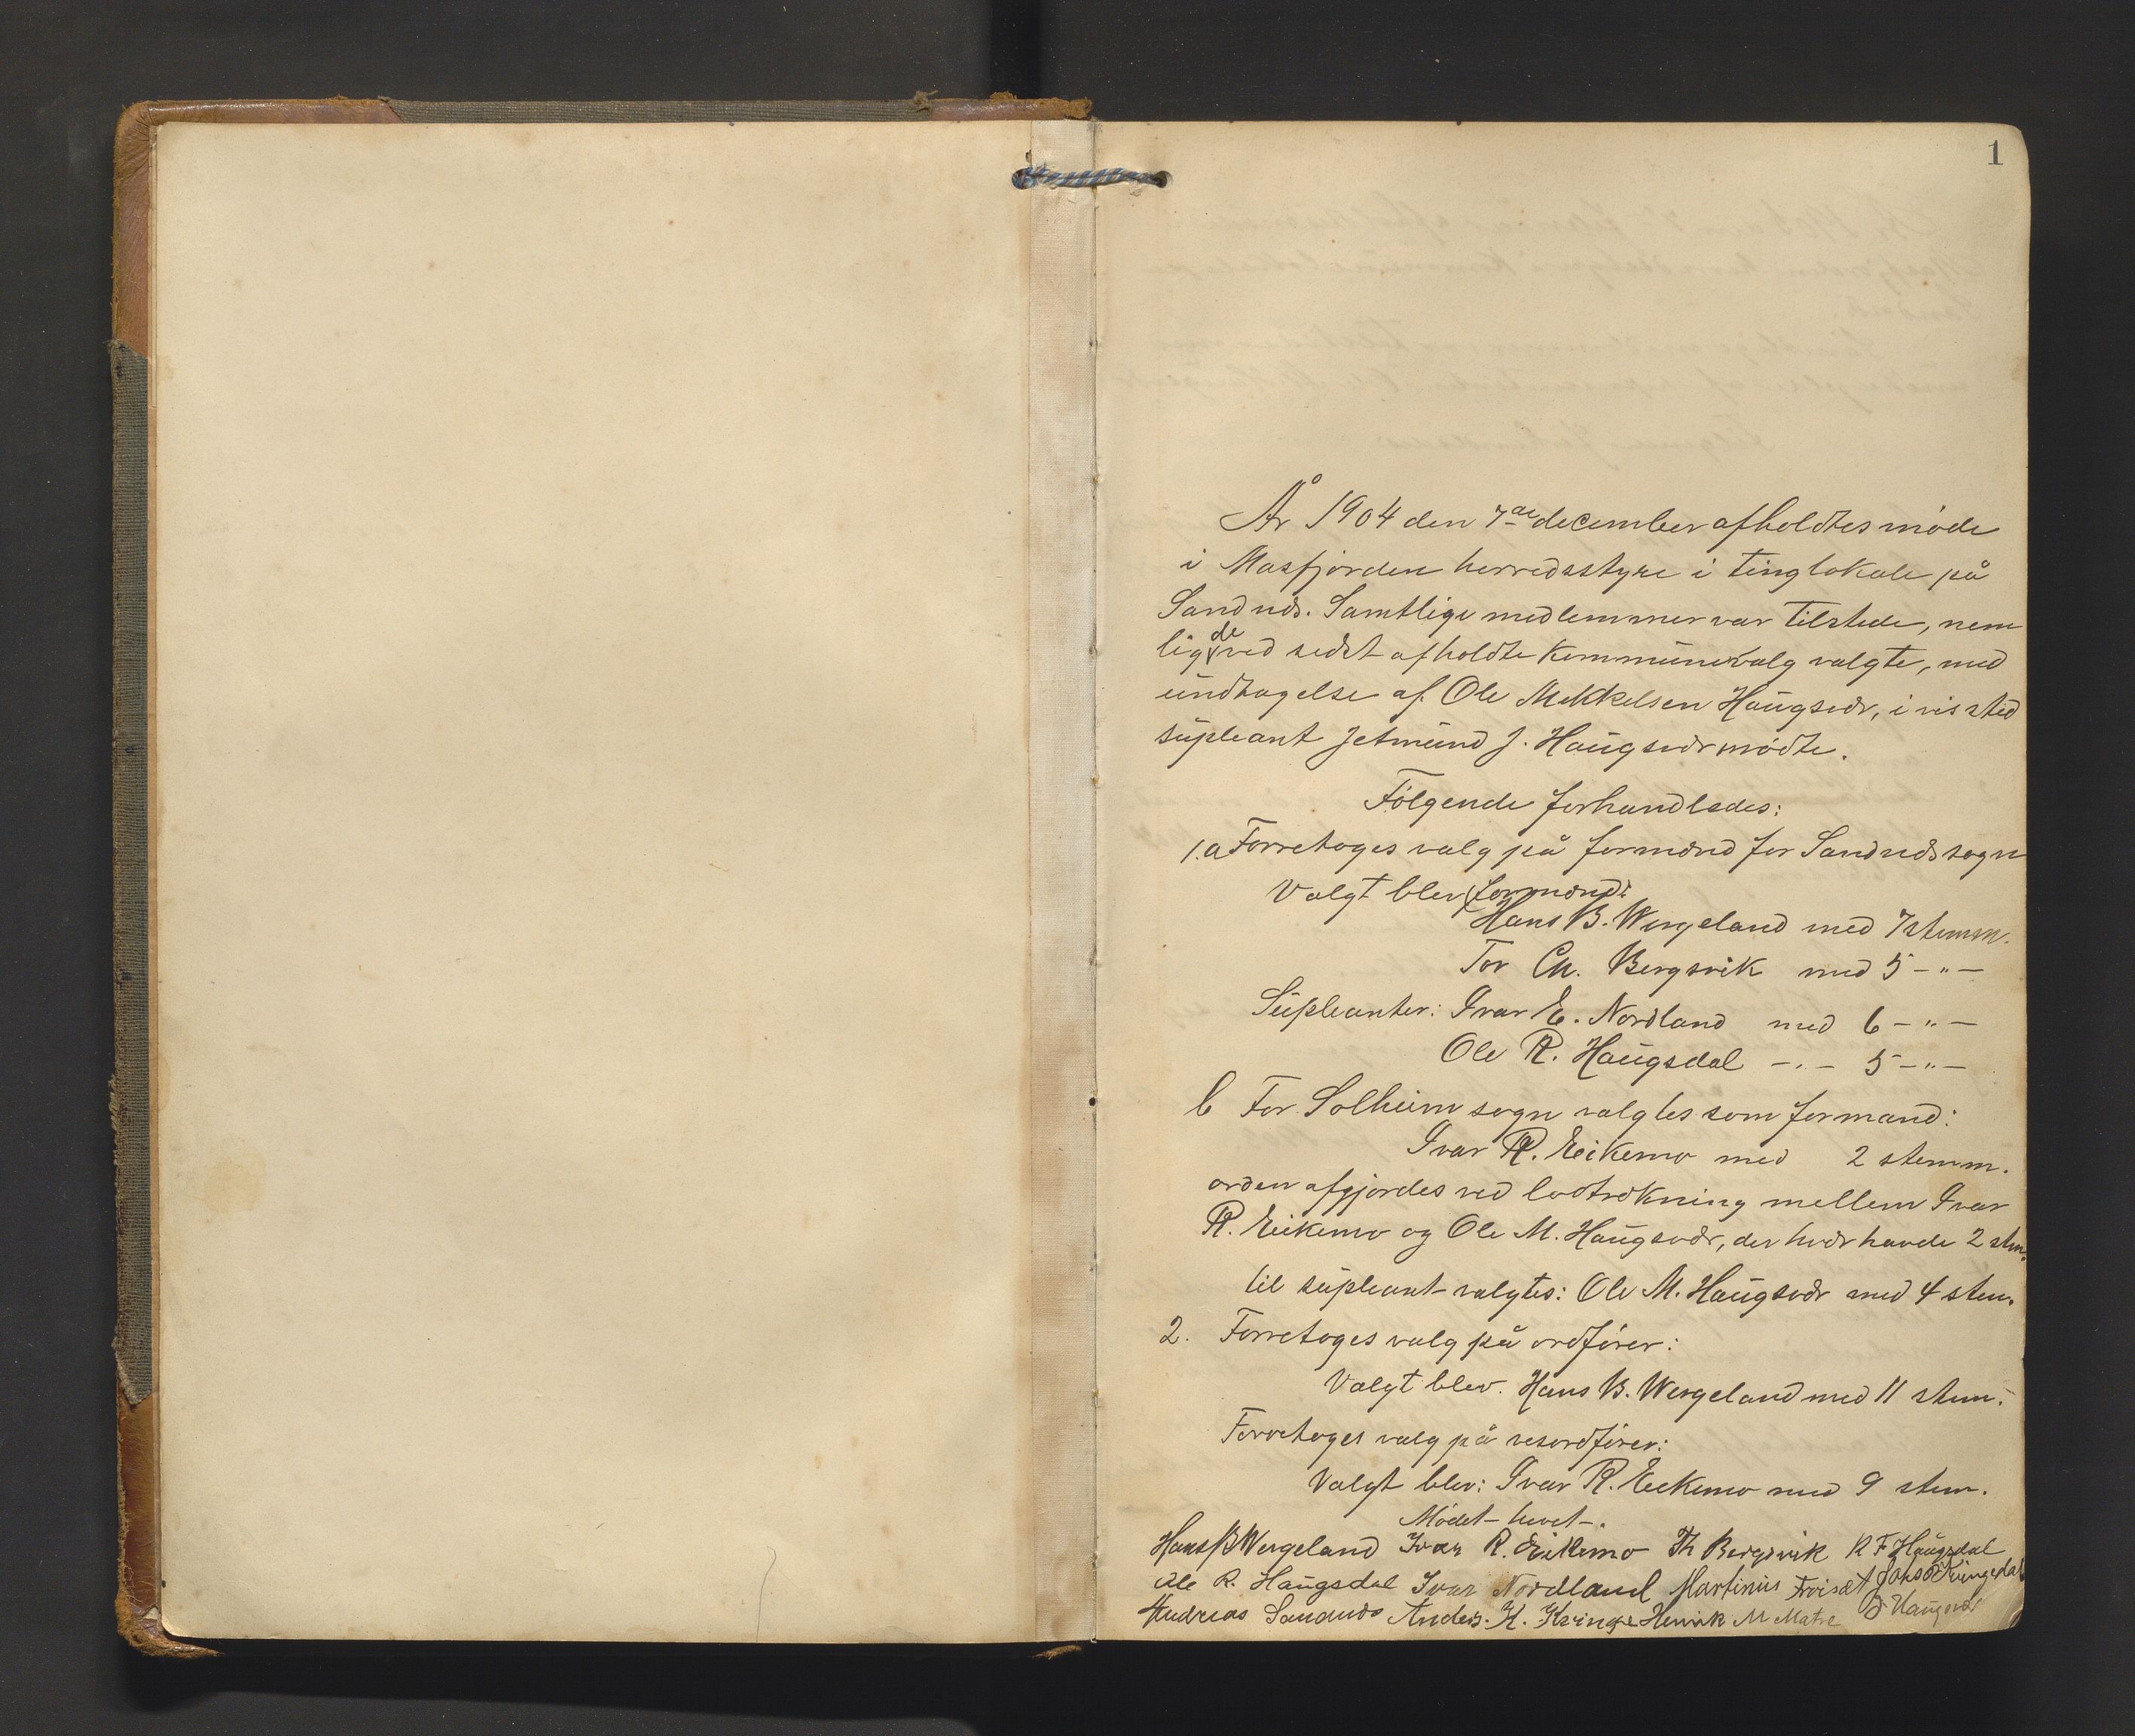 1
År 1904 den 7de december afholdtes møde
i Masfjorden herredsstyre i tinglokale på
Sandnæs. Samtlige medlemmer var tilstede, nem
lig de ved sidst afholdte kommunevalg valgte, med
undtagelse af Ole Mikkelsen Haugsvær, i vis sted
supleant Jetmund J. Haugsvær mødte.
Følgende forhandledes:
1.a Forretoges valg på formænd for Sandnæs sogn
Valgt blev formænd:
Hans B. Wergeland med 7 stemm.
Tor Ch. Bergsvik med 5 -"-
Supleanter: Ivar E. Nordland med 6 -"-
Ole R. Haugsdal -"- 5 -"-
b For Solheim sogn valgtes som formand:
Ivar R. Eikemo med 2 stemm.
orden afgjordes ved lodtrækning mellem Ivar
R. Eikemo og Ole M. Haugsvær, der hvær havde 2 stm.
til supleant valgtes: Ole M. Haugsvær med 4 stem.
2. Forretoges valg på ordfører:
Valgt blev. Hans B. Wergeland med 11 stem.
Forretoges valg på vesordfører:
Valgt blev: Ivar R. Eikemo med 9 stem.
Mødet hevet.
Hans B Wergeland Ivar R. Eikemo Th Bergsvik R F Haugsdal
Ole R. Haugsdal Ivar Nordland Martinus Johs Kvingedal
Andreas Sandnæs Anders. K. Kvinge Henrik M Matre J Haugsvær